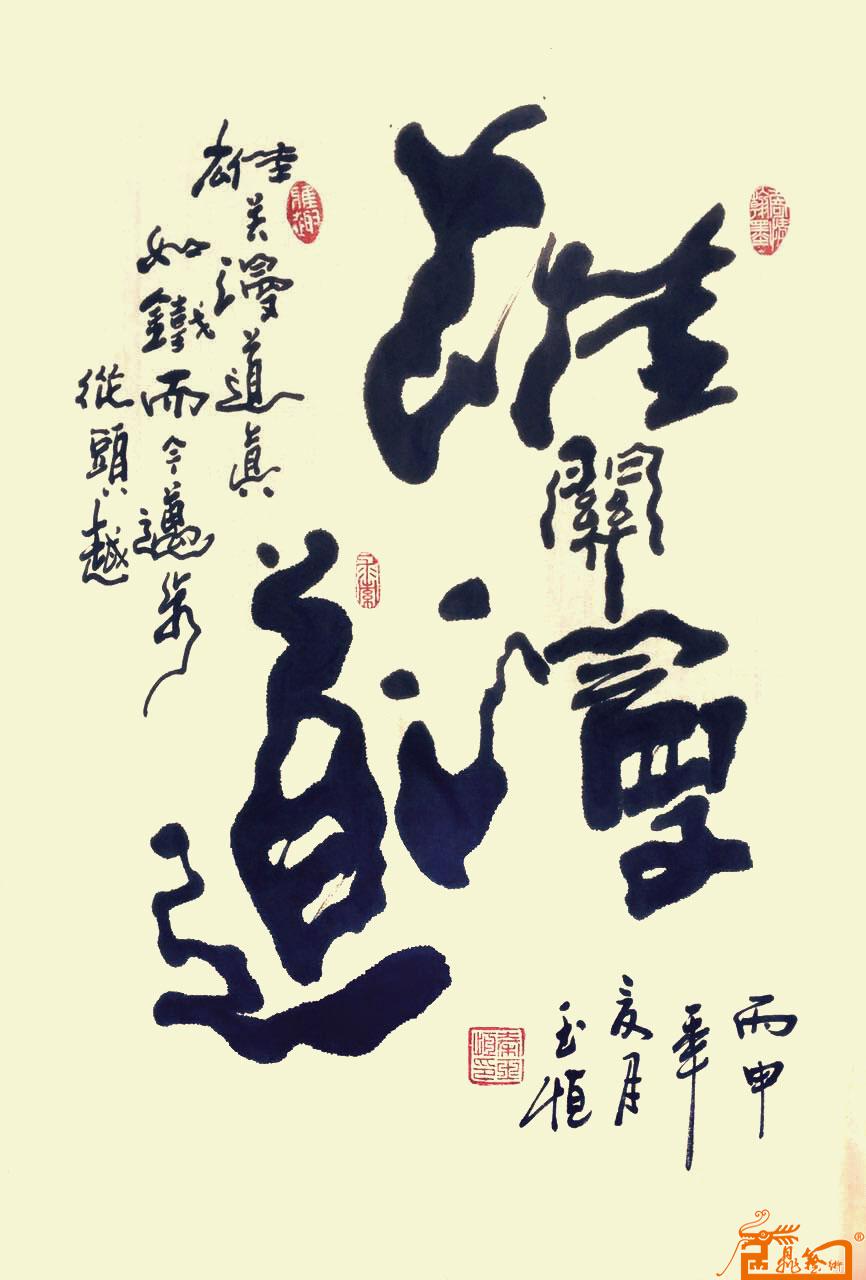 雄關漫道
雄关漫道真
如鐵而今邁步
從頭越
丙申
年
夏月
玉恒
雅趣